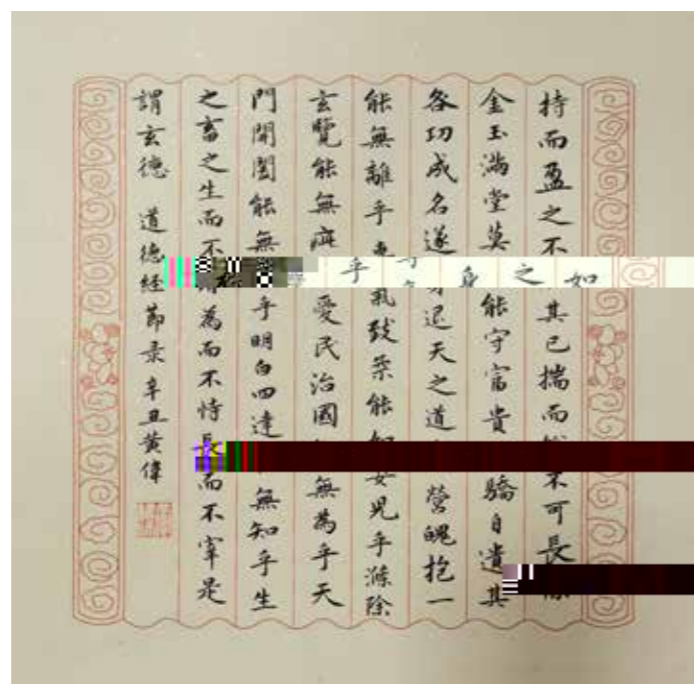 持而盈之不其已揣而不可長
金玉滿堂莫能守富貴驕自遺其
咎功成名遂退天之道營魄抱一
能無離乎氣致柔能兒乎滌除
玄覽能無疵愛民治國無為乎天
門開闔能無乎明白四達無知乎生
之畜之生而不為而不恃長而不宰是
謂玄德 道德經節录辛丑黄偉